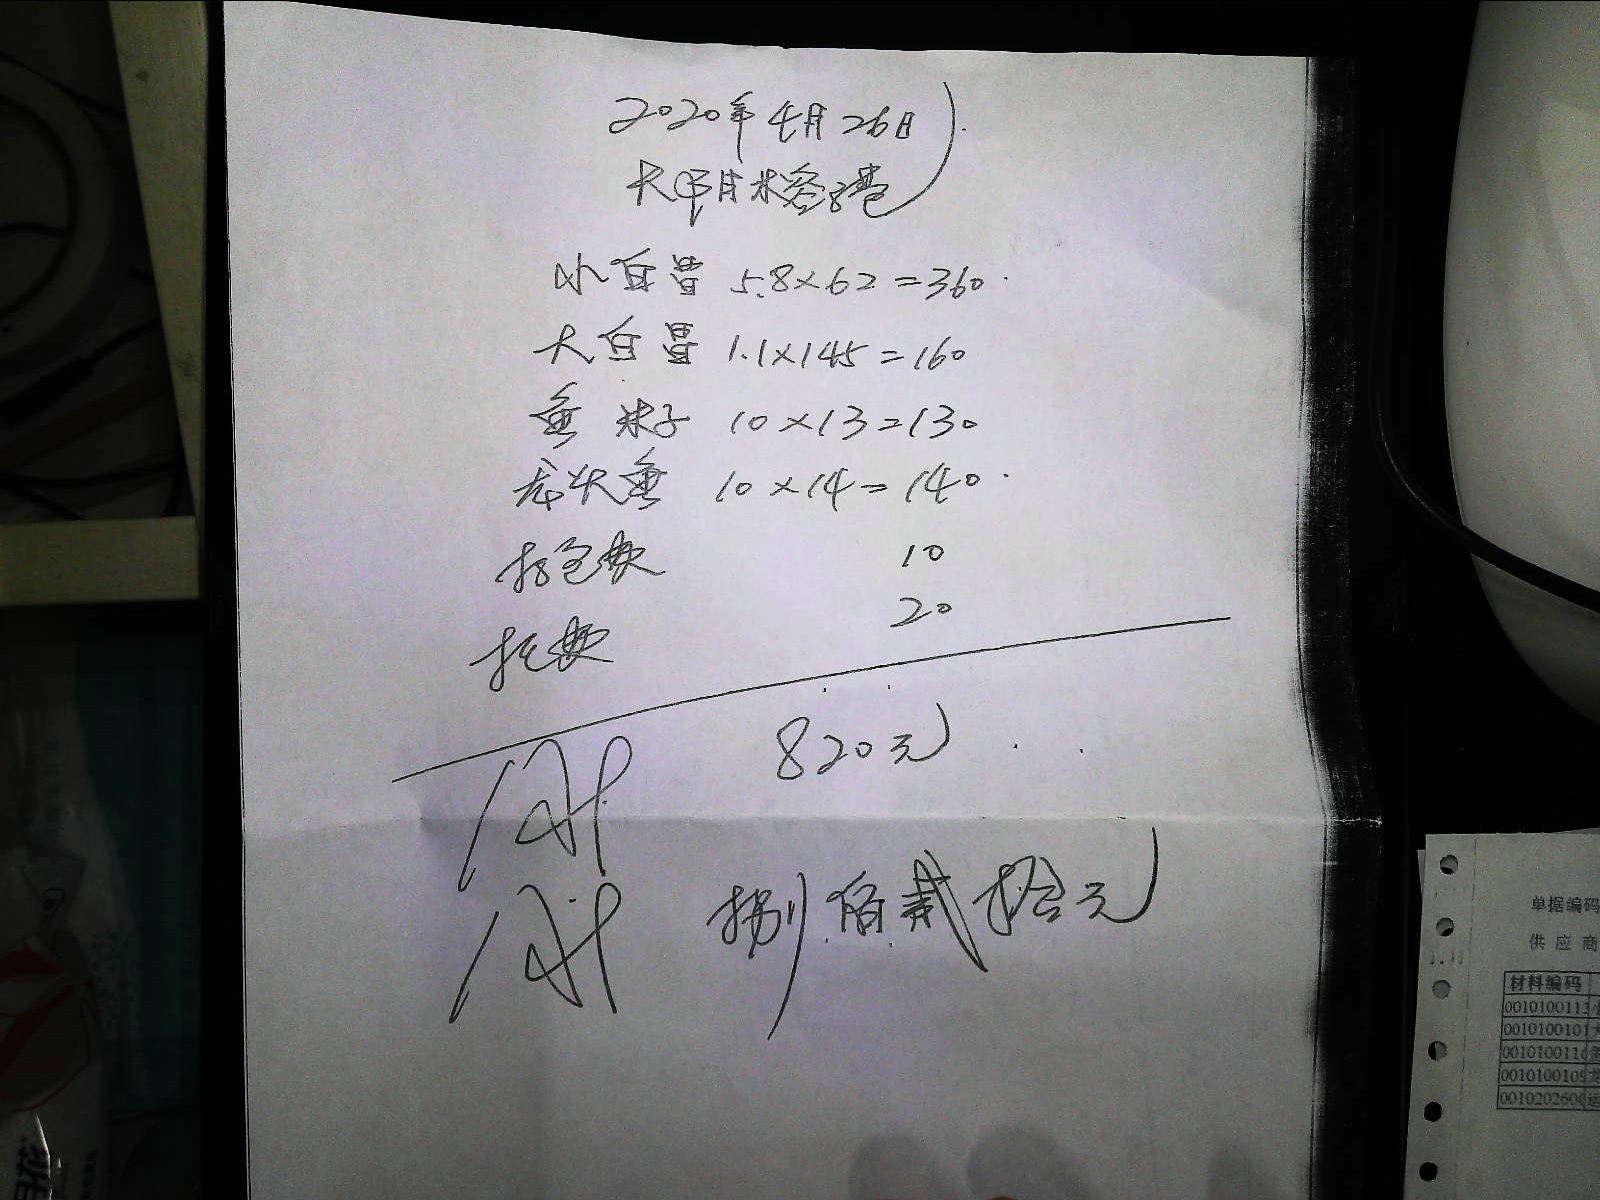 2020年4月26日
小白昌 5.8×62=360
大白昌 1.1×145=160
鱼 沫子 10×13=130
龙头鱼 10×14=140
打包费 10
托费 20
820元
捌佰贰拾元
单据编码
供应商
材料编码
0010100113小
0010100101大
001010011
001010010 龙
0010202600运